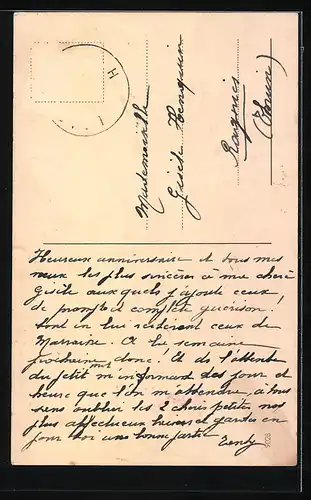 Mademoiselle
Gisèle Hennequin
Ragnies
(Thuin)
Heureux anniversaire et tous mes
vœux les plus sincères à ma chère
Gisèle auxquels j'ajoute ceux
de prompte et complète guérison!
sont en lui réitérant ceux de
Marraine. A la semaine
prochaine donc! Et de l'attente
du petit mot m'informant des jour et
heure que l'on m'attendra, à tous
sans oublier les 2 chéris petits nos
plus affectueux baisers et gardez en
pour toi une bonne partie